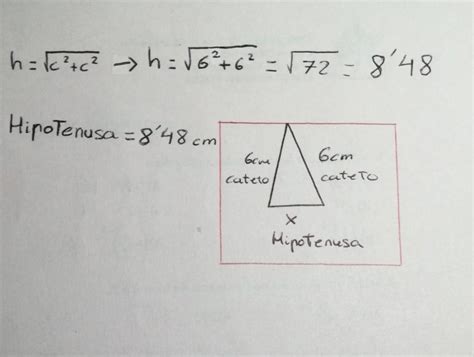 h = √c²+c² → h = √6²+6² = √72 = 8'48
Hipotenusa = 8'48 cm
6cm 6cm
cateto cateto
x
Hipotenusa